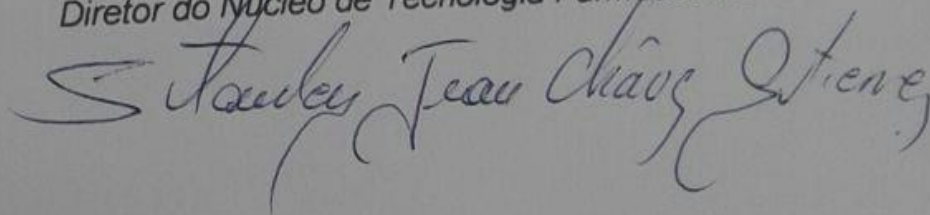 Diretor do Núcleo de Tecnologia
Stanley Juan Chávez